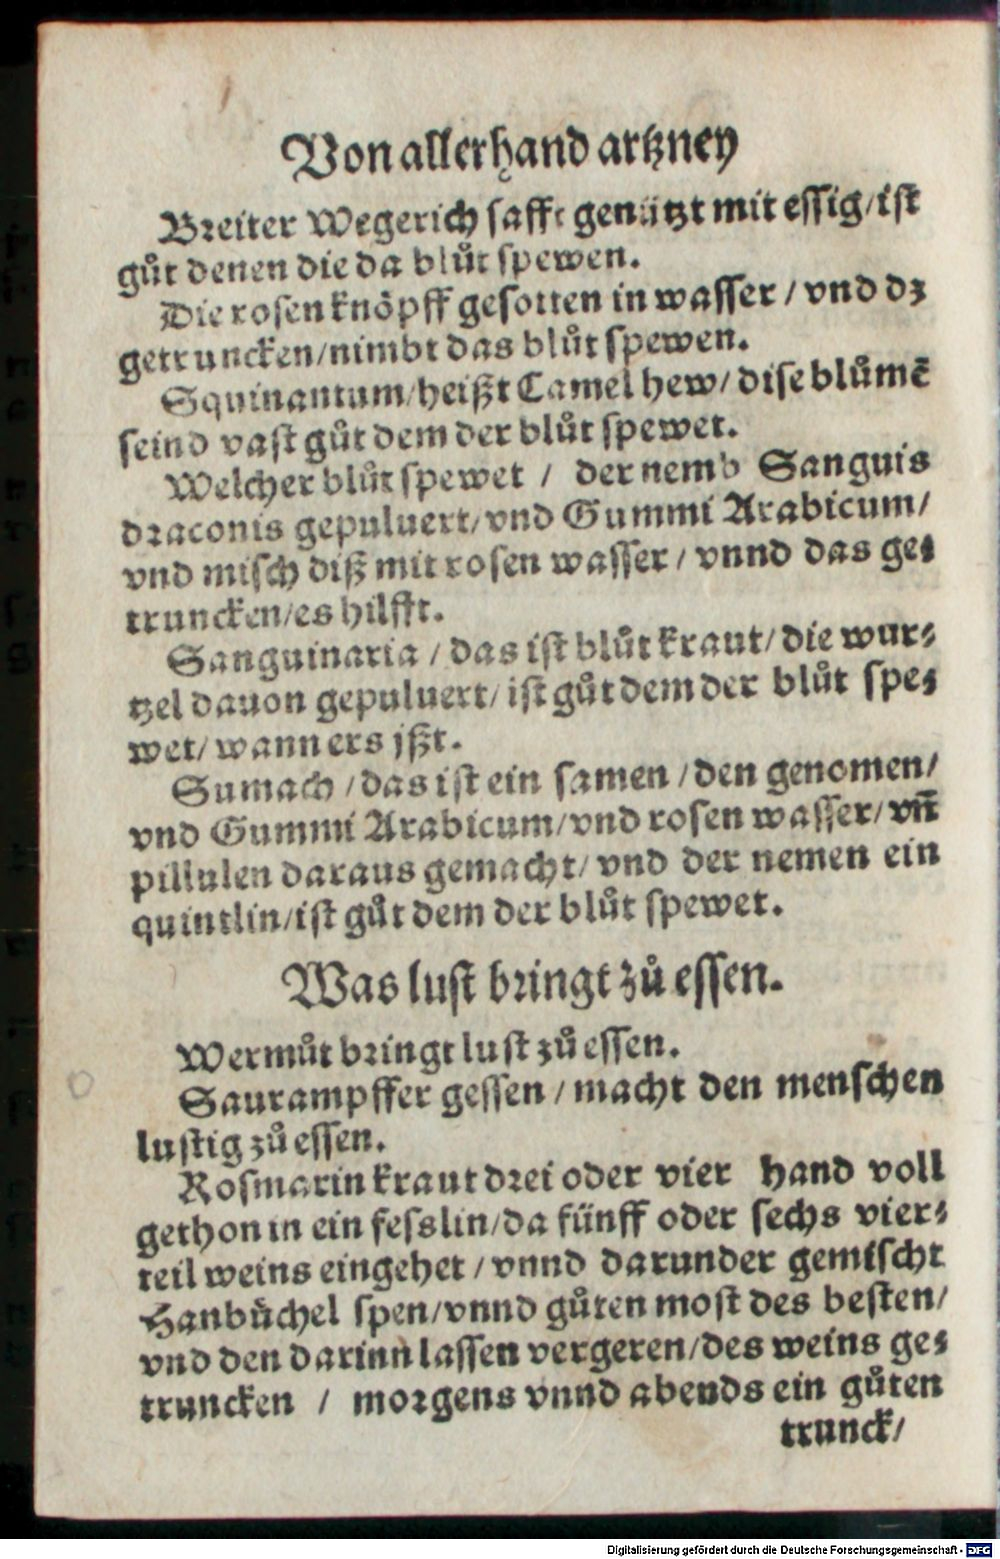 Von allerhand artzney
Breiter Wegerich safft genützt mit essig/ist
gůt denen die da blůt spewen.
Die rosen knöpff gesotten in wasser / vnd dz
getruncken/nimbt das blůt spewen.
Squinantum/heißt Camel hew/ dise blůmē
seind vast gůt dem der blůt spewet.
Welcher blůt spewet / der nemb Sanguis
draconis gepuluert/vnd Gummi Arabicum/
vnd misch diß mit rosen wasser / vnnd das ge⸗
truncken/es hilfft.
Sanguinaria / das ist blůt kraut/ die wur⸗
tzel dauon gepuluert/ ist gůt dem der blůt spe⸗
wet/ wann ers jßt.
Sumach / das ist ein samen / den genomen/
vnd Gummi Arabicum/vnd rosen wasser/ vñ
pillulen daraus gemacht/ vnd der nemen ein
quintlin/ist gůt dem der blůt spewet.
Was lust bringt zů essen.
Wermůt bringt lust zů essen.
Saurampffer gessen / macht den menschen
lustig zů essen.
Rosmarin kraut drei oder vier hand voll
gethon in ein fesslin/da fünff oder sechs vier⸗
teil weins eingehet / vnnd darunder gemischt
Hanbüchel spen/vnnd gůten most des besten/
vnd den darinn lassen vergeren/des weins ge⸗
truncken / morgens vnnd abends ein gůten
trunck/
Digitalisierung gefördert durch die Deutsche Forschungsgemeinschaft - DFG